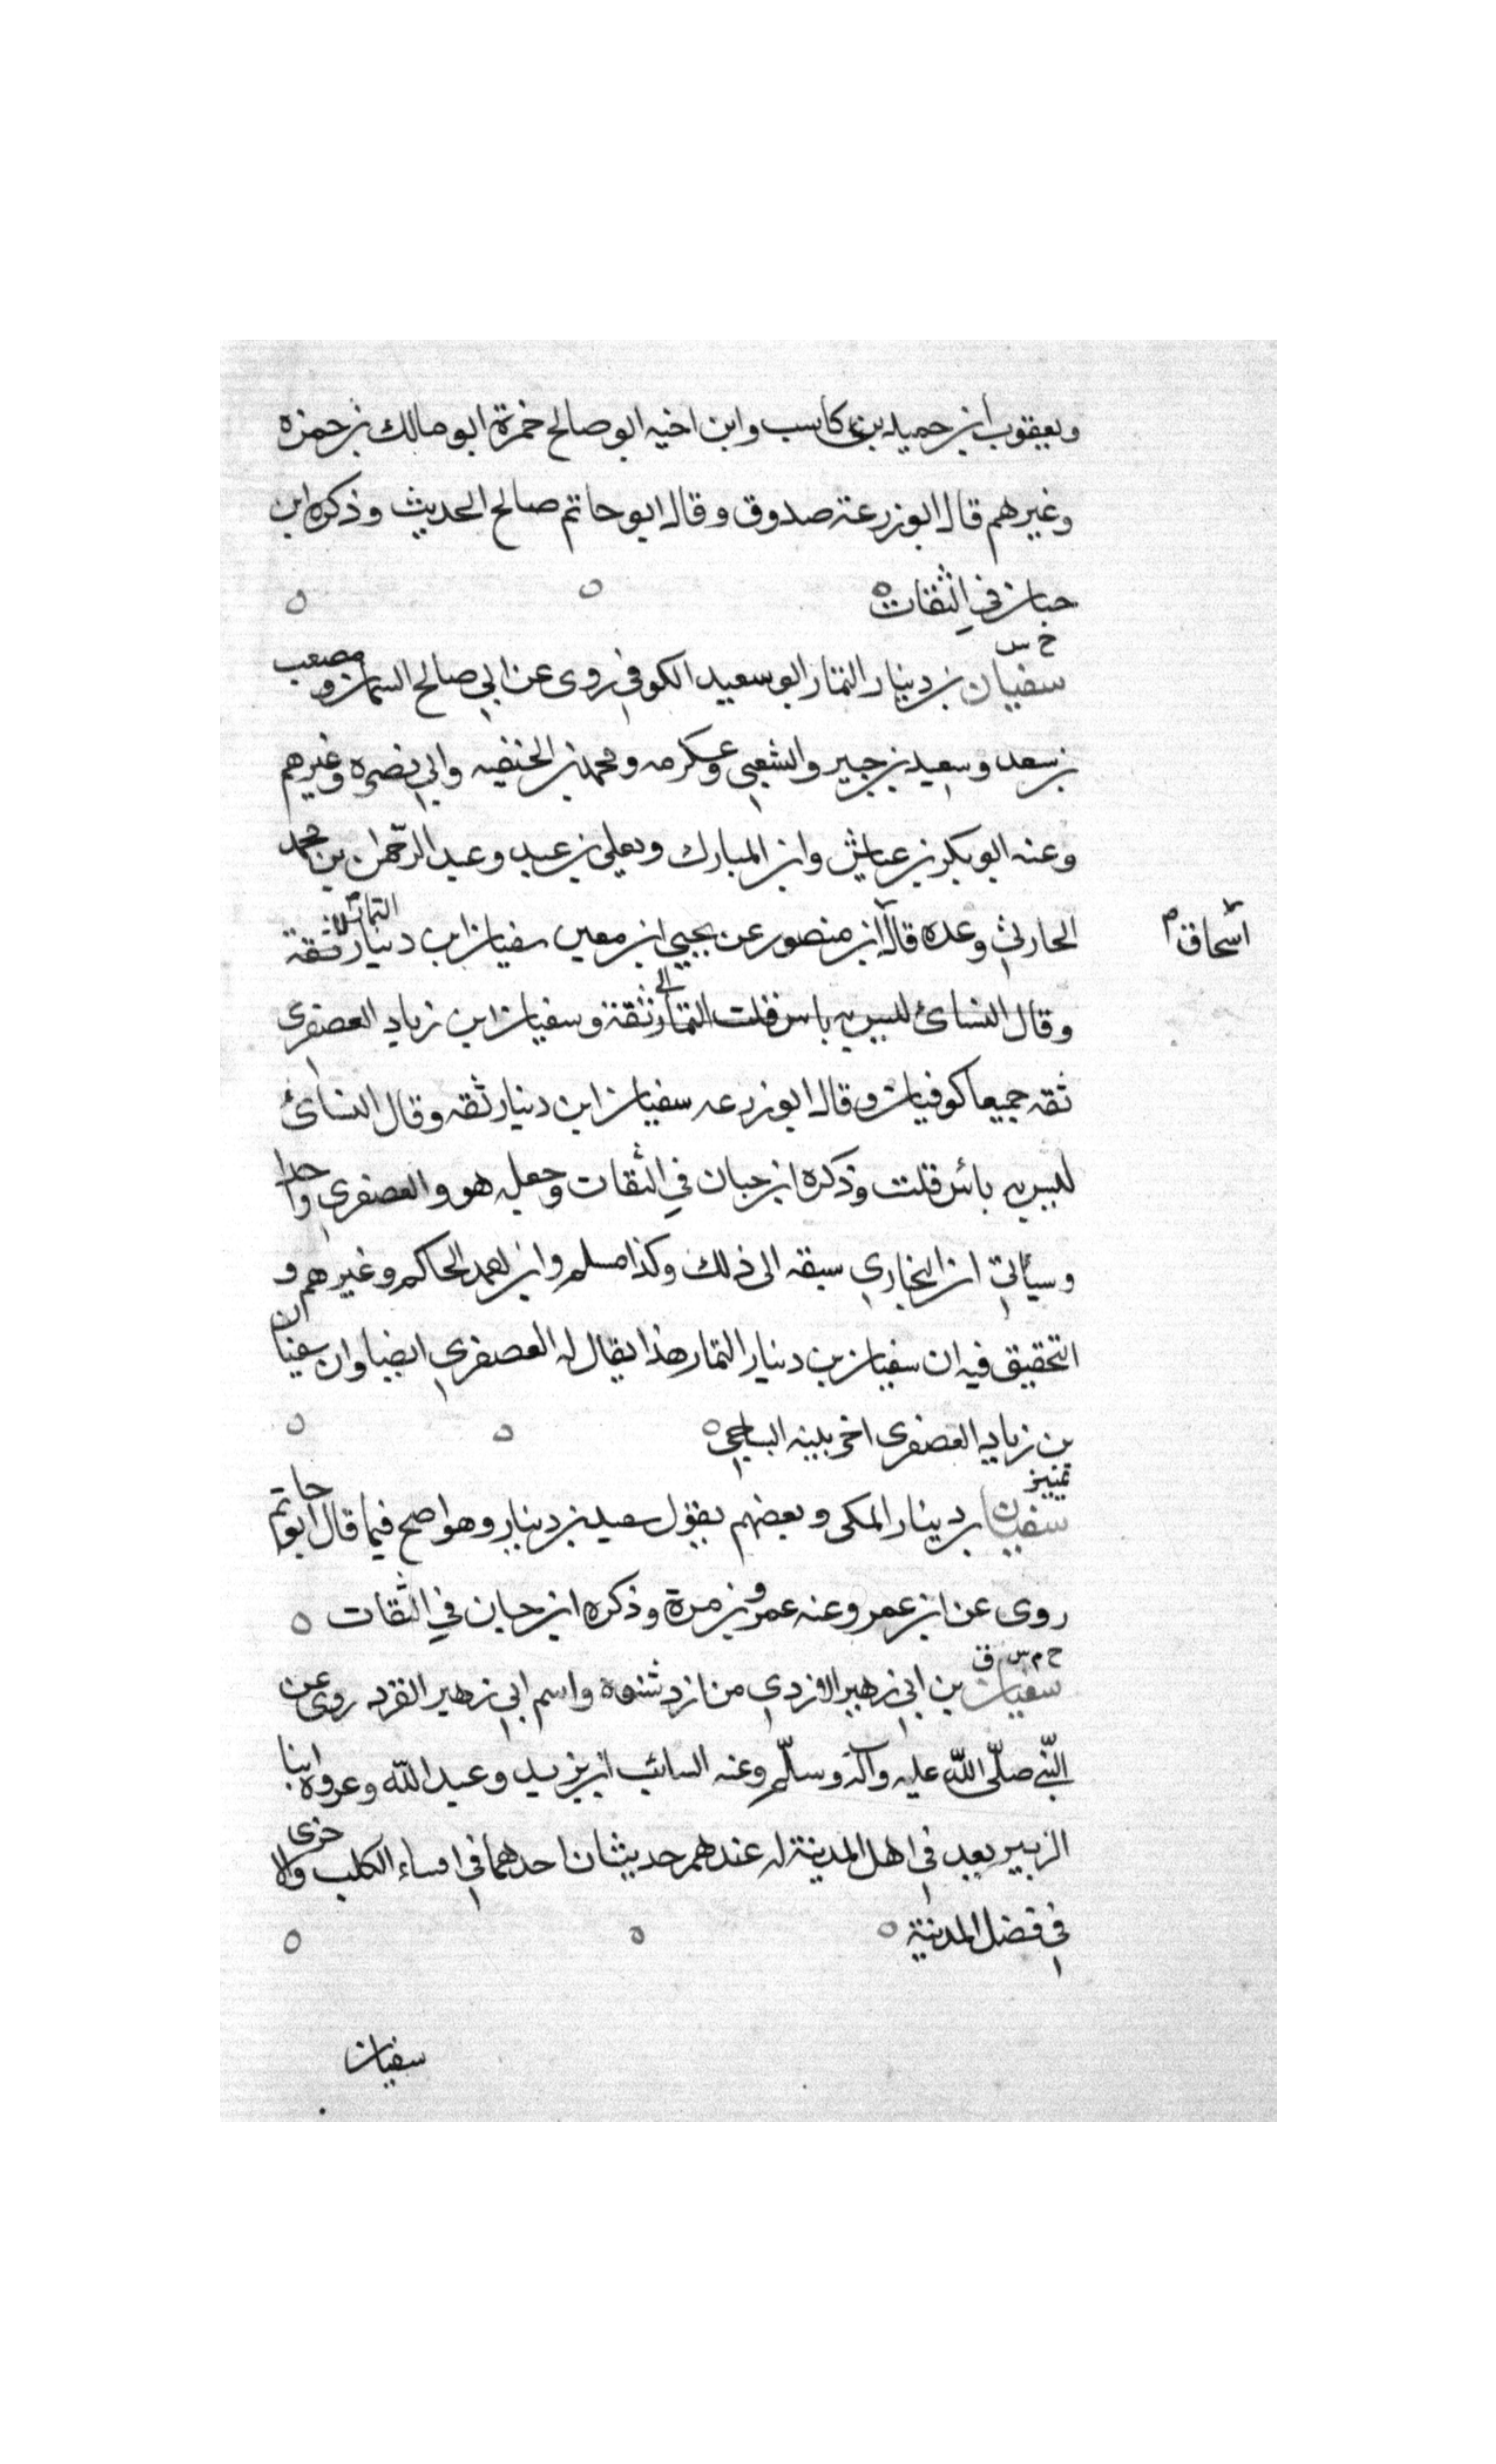 ويعقوب ابن حميد بن كاسب وابن اخيه ابو صالح حمزة ابو مالك بن حمزه
وغيرهم قال ابو زرعة صدوق وقال ابو حاتم صالح الحديث وذكره ابن
حبان في الثقات
خ س
سفيان بن دينار التمار ابو سعيد الكوفي روى عن ابي صالح السمان ومصعب
بن سعد وسعيد بن جبير والشعبي وعكرمه ومحمد بن الحنفيه وابي نضره وغيرهم
وعنه ابو بكر بن عياش وابن المبارك ويعلي بن عبيد وعبد الرحمن بن محمد
الحارثي وعده قال ابن منصور عن يحيي ابن معين سفيان ابن دينار التمار ثقة
اسحاق م
وقال النسائ ليس به باس قلت التمار ثقة وسفيان ابن زياد العصفرى
ثقه جميعا كوفيان وقال ابو زرعه سفيان ابن دينار ثقه وقال النسائ
ليس به بائس قلت وذكره ابن حبان في الثقات وجعله هو والعصفري واحدا
وسيأتي ان البخاري سبقه الى ذلك وكذا مسلم وابو احمد الحاكم وغيرهم و
التحقيق فيه ان سفيان بن دينار التمار هذا يقال له العصفري ايضا وان سفيان
بن زياد العصفرى اخر بينه الباجي
تمييز
سفيان بن دينار المكى وبعضهم يقول سعيد بن دينار وهو اصح فيما قال ابو حاتم
روى عن ابن عمر وعنه عمرو بن مرة وذكره ابن حبان في الثقات
خ م س ق
سفيان بن ابي زهير الازدي من ازد شنوة واسم ابي زهير القرد روى عن
النبي صلى الله عليه وآله وسلم وعنه السائب ابن يزيد وعبد الله وعروه ابنا
الزبير يعد في اهل المدينة له عندهم حديثان احدهما في امساء الكلب والاخرى
في فضل المدينة
سفيان